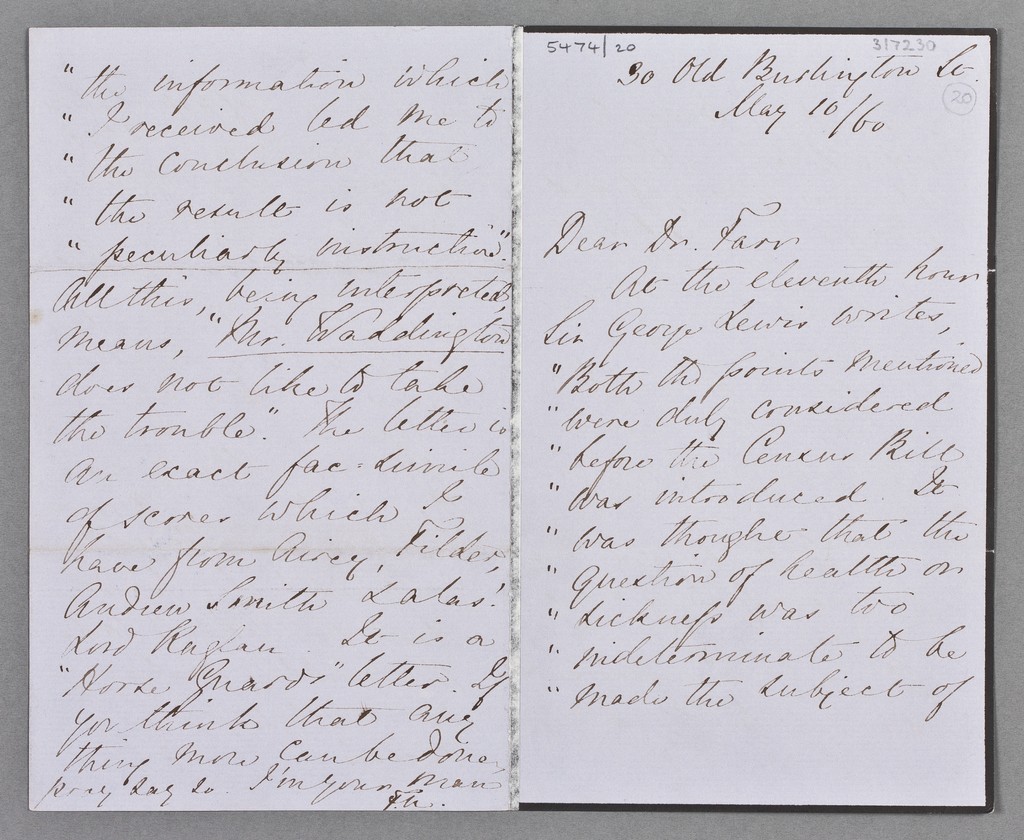 5474/20
317230
20
30 Old Burlington St.
May 10/60
Dear Dr. Farr
At the eleventh hour
Sir George Lewis writes,
"Both the points mentioned
"were duly considered
"before the Census Bill
"was introduced. It
"was thought that the
"question of health or
"sickness was too
"indeterminate to be
"made the subject of
"the information which
"I received led me to
"the conclusion that
"the result is not
"peculiarly instructive".
All this, being interpreted,
means, "Mr. Waddington
does not like to take
the trouble". The letter is
an exact fac=simile
of scores which I
have from Airey, Filder,
Andrew Smith & alas!
Lord Raglan. It is a
"Horse Guards" letter. If
you think that any
thing more can be done,
pray say so. I'm your man
F.N.